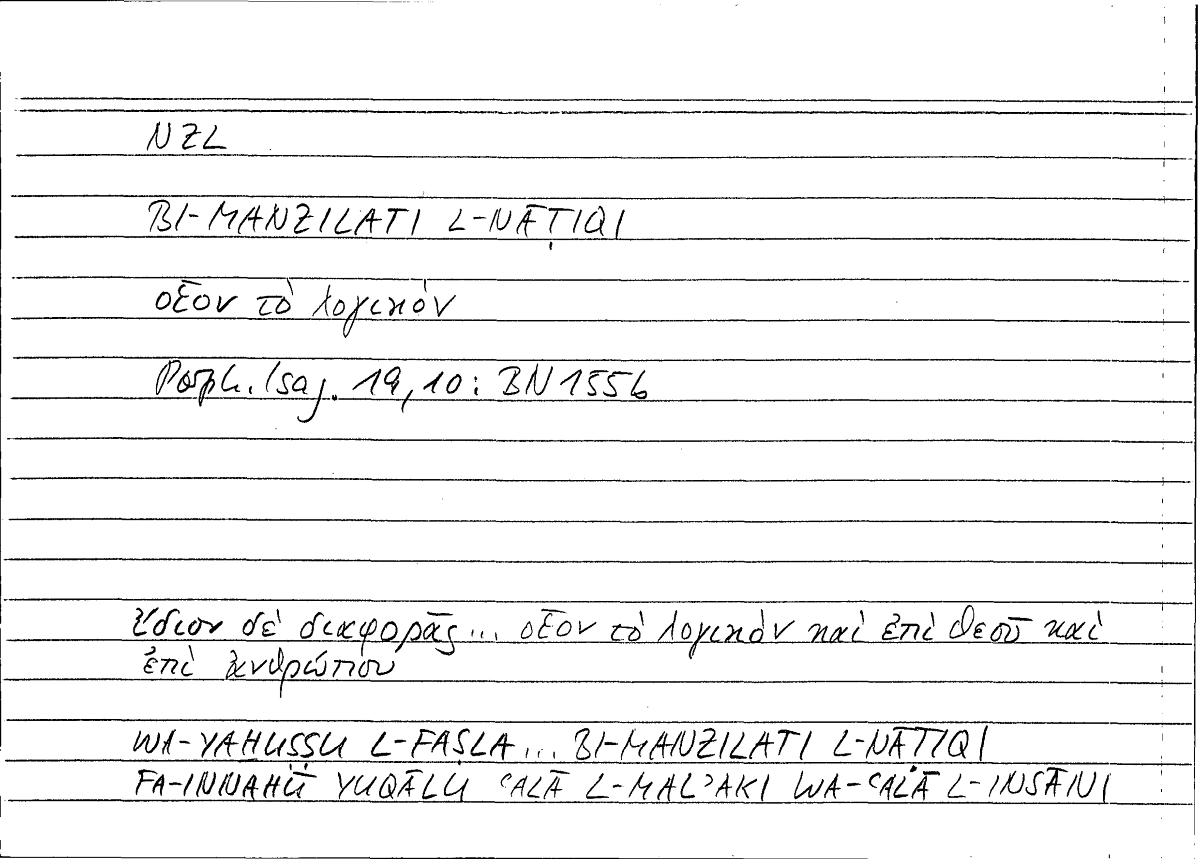 NZL
BI-MANZILATI L-NĀṬIQI
οἷον τὸ λογικόν
Porph. Isag. 19,10: BN 155b
ἴδιον δὲ διαφορᾶς... οἷον τὸ λογικὸν καὶ ἐπὶ θεοῦ καὶ
ἐπὶ ἀνθρώπου
WA-YAḪUṢṢU L-FAṢLA... BI-MANZILATI L-NĀṬIQI
FA-INNAHŪ YUQĀLU ʿALĀ L-MALʾAKI WA-ʿALĀ L-INSĀNI